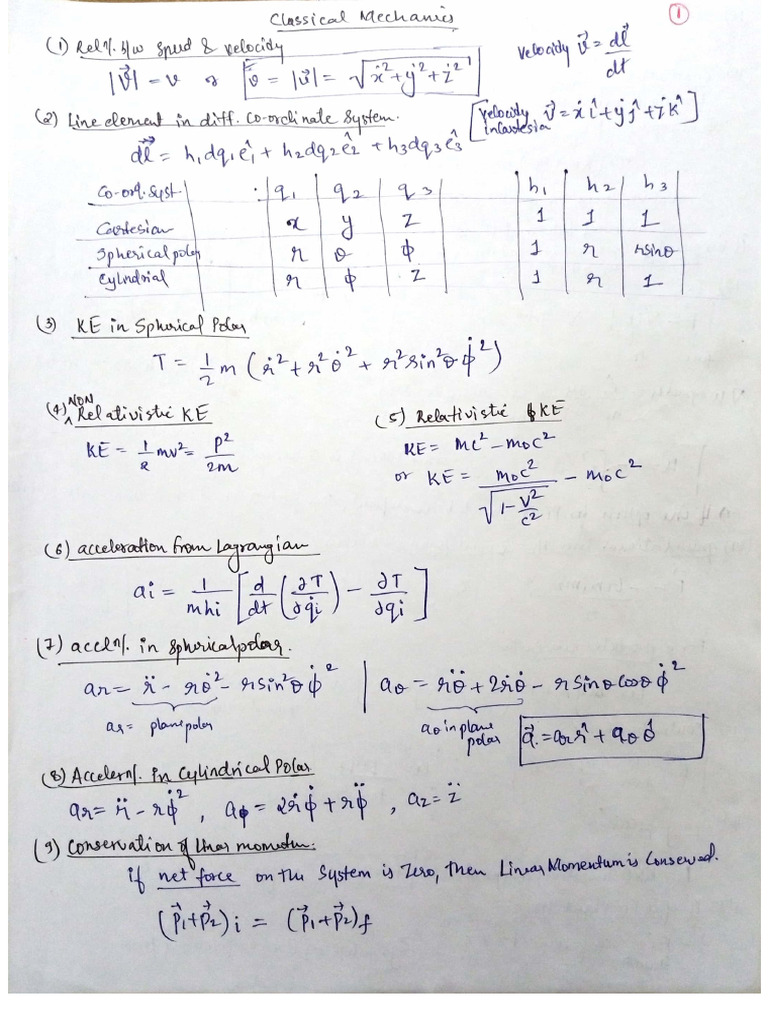 Classical Mechanics
①
(1) Reln. b/w speed & velocity
velocity v⃗ = dl⃗/dt
|v⃗| = v or v = |v⃗| = √(ẋ² + ẏ² + ż²)
(2) Line element in diff. co-ordinate system.
[velocity in Cartesian v⃗ = ẋ î + ẏ ĵ + ż k̂]
dl⃗ = h₁dq₁ê₁ + h₂dq₂ê₂ + h₃dq₃ê₃
Co-ord. Syst. : q₁ | q₂ | q₃ | h₁ | h₂ | h₃
Cartesian x | y | z | 1 | 1 | 1
Spherical polar r | θ | ϕ | 1 | r | r sinθ
Cylindrial r | ϕ | z | 1 | r | 1
(3) KE in Spherical Polar
T = 1/2 m (ṙ² + r²θ̇² + r² sin²θ ϕ̇²)
(4) NON Relativistic KE
KE = 1/2 mv² = p²/2m
(5) Relativistic KE
KE = mc² − m₀c²
or KE = m₀c²/√(1 − v²/c²) − m₀c²
(6) acceleration from Lagrangian
aᵢ = 1/mhᵢ [d/dt (∂T/∂q̇ᵢ) − ∂T/∂qᵢ]
(7) acceln. in spherical polar.
ar = r̈ − rθ̇² − r sin²θ ϕ̇² | aθ = rθ̈ + 2ṙθ̇ − r sinθ cosθ ϕ̇²
ar = plane polar
aθ in plane polar
a⃗ = ar r̂ + aθ θ̂
(8) Accelern. in Cylindrical Polar
ar = r̈ − rϕ̇², aϕ = 2ṙϕ̇ + rϕ̈, az = z̈
(9) Conservation of linear momentum:
if net force on the system is Zero, then Linear Momentum is Conserved.
(p⃗₁ + p⃗₂)i = (p⃗₁ + p⃗₂)f